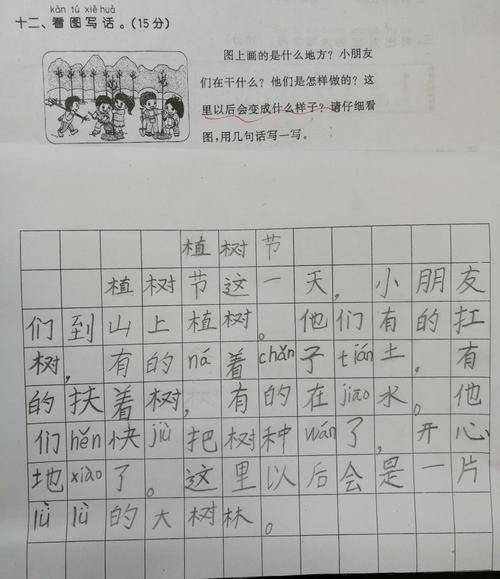 kàn tú xiě huà
十二、看图写话。(15分)
图上画的是什么地方？小朋友
们在干什么？他们是怎样做的？这
里以后会变成什么样子？请仔细看
图，用几句话写一写。
植树节
植树节这一天，小朋友
们到山上植树。他们有的扛
树，有的ná着chǎn子tián土，有
的扶着树，有的在jiao水。他
们hěn快jiù把树种wán了，开心
地xiào了。这里以后会是一片
lǜ lǜ的大树林。